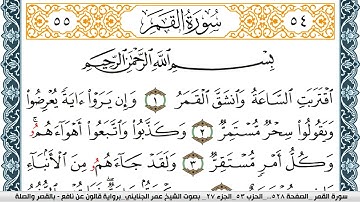 ٥٥ سُورَةُ القَمَرِ ٥٤
بِسْمِ اللَّهِ الرَّحْمَٰنِ الرَّحِيمِ
اَقْتَرَبَتِ السَّاعَةُ وَانشَقَّ الْقَمَرُ ١ وَإِن يَرَوْاْ ءَايَةً يُعْرِضُواْ
وَيَقُولُواْ سِحْرٌ مُّسْتَمِرٌّ ٢ وَكَذَّبُواْ وَاتَّبَعُواْ أَهْوَاءَهُمُۥ
وَكُلُّ أَمْرٍ مُّسْتَقِرٌّ ٣ وَلَقَدْ جَاءَهُم مِّنَ الْأَنۢبَاءِ
سورة القمر .. الصفحة ٥٢٨... الحزب ٥٣ .. الجزء ٢٧ .. بصوت الشيخ عمر الجنايني .. برواية قالون عن نافع - بالقصر والصلة